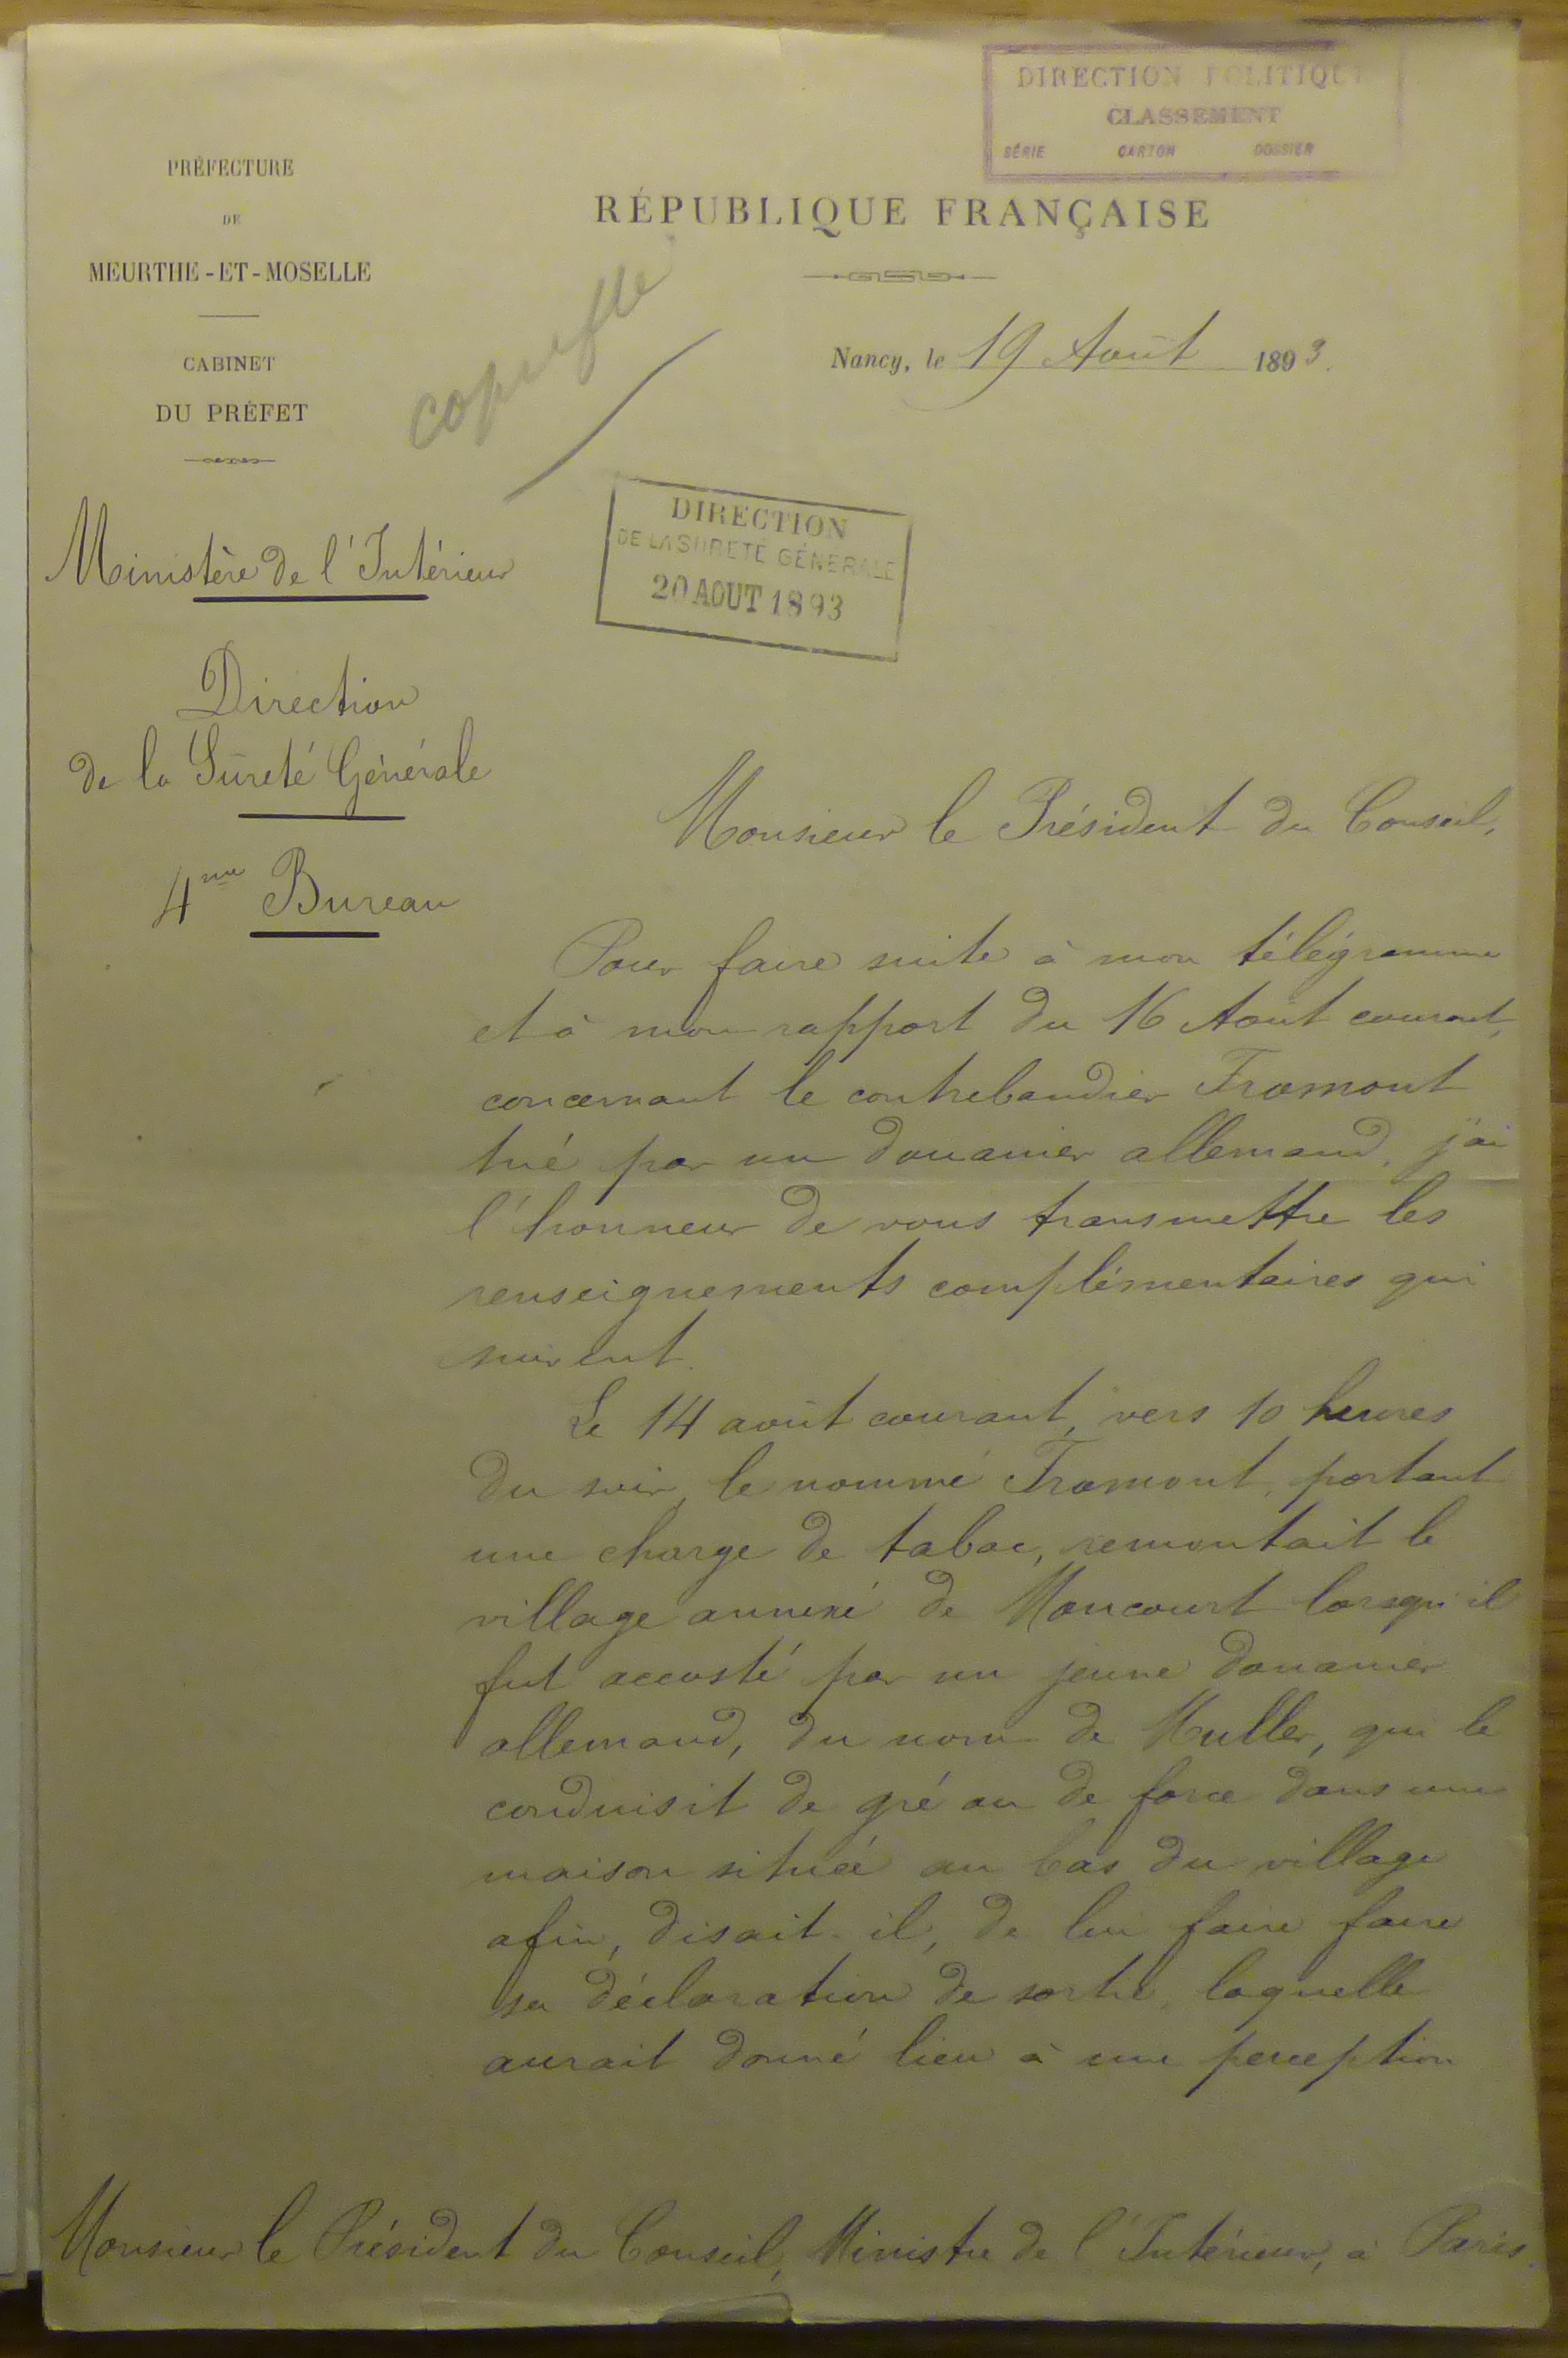 DIRECTION POLITIQUE
CLASSEMENT
SÉRIE CARTON DOSSIER
PRÉFECTURE
DE
MEURTHE-ET-MOSELLE
CABINET
DU PRÉFET
RÉPUBLIQUE FRANÇAISE
Nancy, le 19 Août 1893.
DIRECTION
DE LA SURETÉ GÉNÉRALE
20 AOUT 1893
Ministère de l'Intérieur
Direction
de la Sûreté Générale
4me Bureau
Monsieur le Président du Conseil,
Pour faire suite à mon télégramme
et à mon rapport du 16 Août courant,
concernant le contrebandier Framont
tué par un douanier allemand, j'ai
l'honneur de vous transmettre les
renseignements complémentaires qui
suivent.
Le 14 août courant, vers 10 heures
du soir, le nommé Framont, portant
une charge de tabac, remontait le
village annexé de Moncourt lorsqu'il
fut accosté par un jeune douanier
allemand, du nom de Muller, qui le
conduisit de gré ou de force dans une
maison située au bas du village
afin, disait-il, de lui faire faire
sa déclaration de sortie, laquelle
aurait donné lieu à une perception
Monsieur le Président du Conseil, Ministre de l'Intérieur, à Paris.